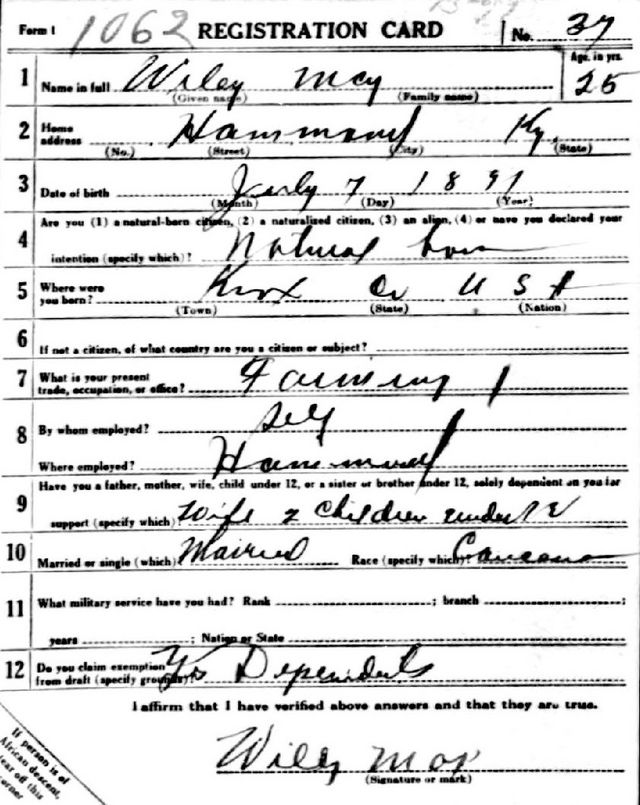 Form 1 1062 REGISTRATION CARD No. 37
1 Name in full Wiley May Age, in yrs. 25
(Given name) (Family name)
2 Home address Hammond Ky.
(No.) (Street) (City) (State)
3 Date of birth July 7 1891
(Month) (Day) (Year)
4 Are you (1) a natural-born citizen, (2) a naturalized citizen, (3) an alien, (4) or have you declared your
intention (specify which)? Natural born
5 Where were you born? Knox Co U S A
(Town) (State) (Nation)
6 If not a citizen, of what country are you a citizen or subject?
7 What is your present trade, occupation, or office? Farming
8 By whom employed? Self
Where employed? Hammond
9 Have you a father, mother, wife, child under 12, or a sister or brother under 12, solely dependent on you for
support (specify which)? Wife 2 Children under 12
10 Married or single (which)? Married Race (specify which)?
11 What military service have you had? Rank ; branch ;
years ; Nation or State
12 Do you claim exemption from draft (specify grounds)? Yes Dependents
I affirm that I have verified above answers and that they are true.
Wiley
(Signature or mark)
If person is of
African descent,
tear off this
corner